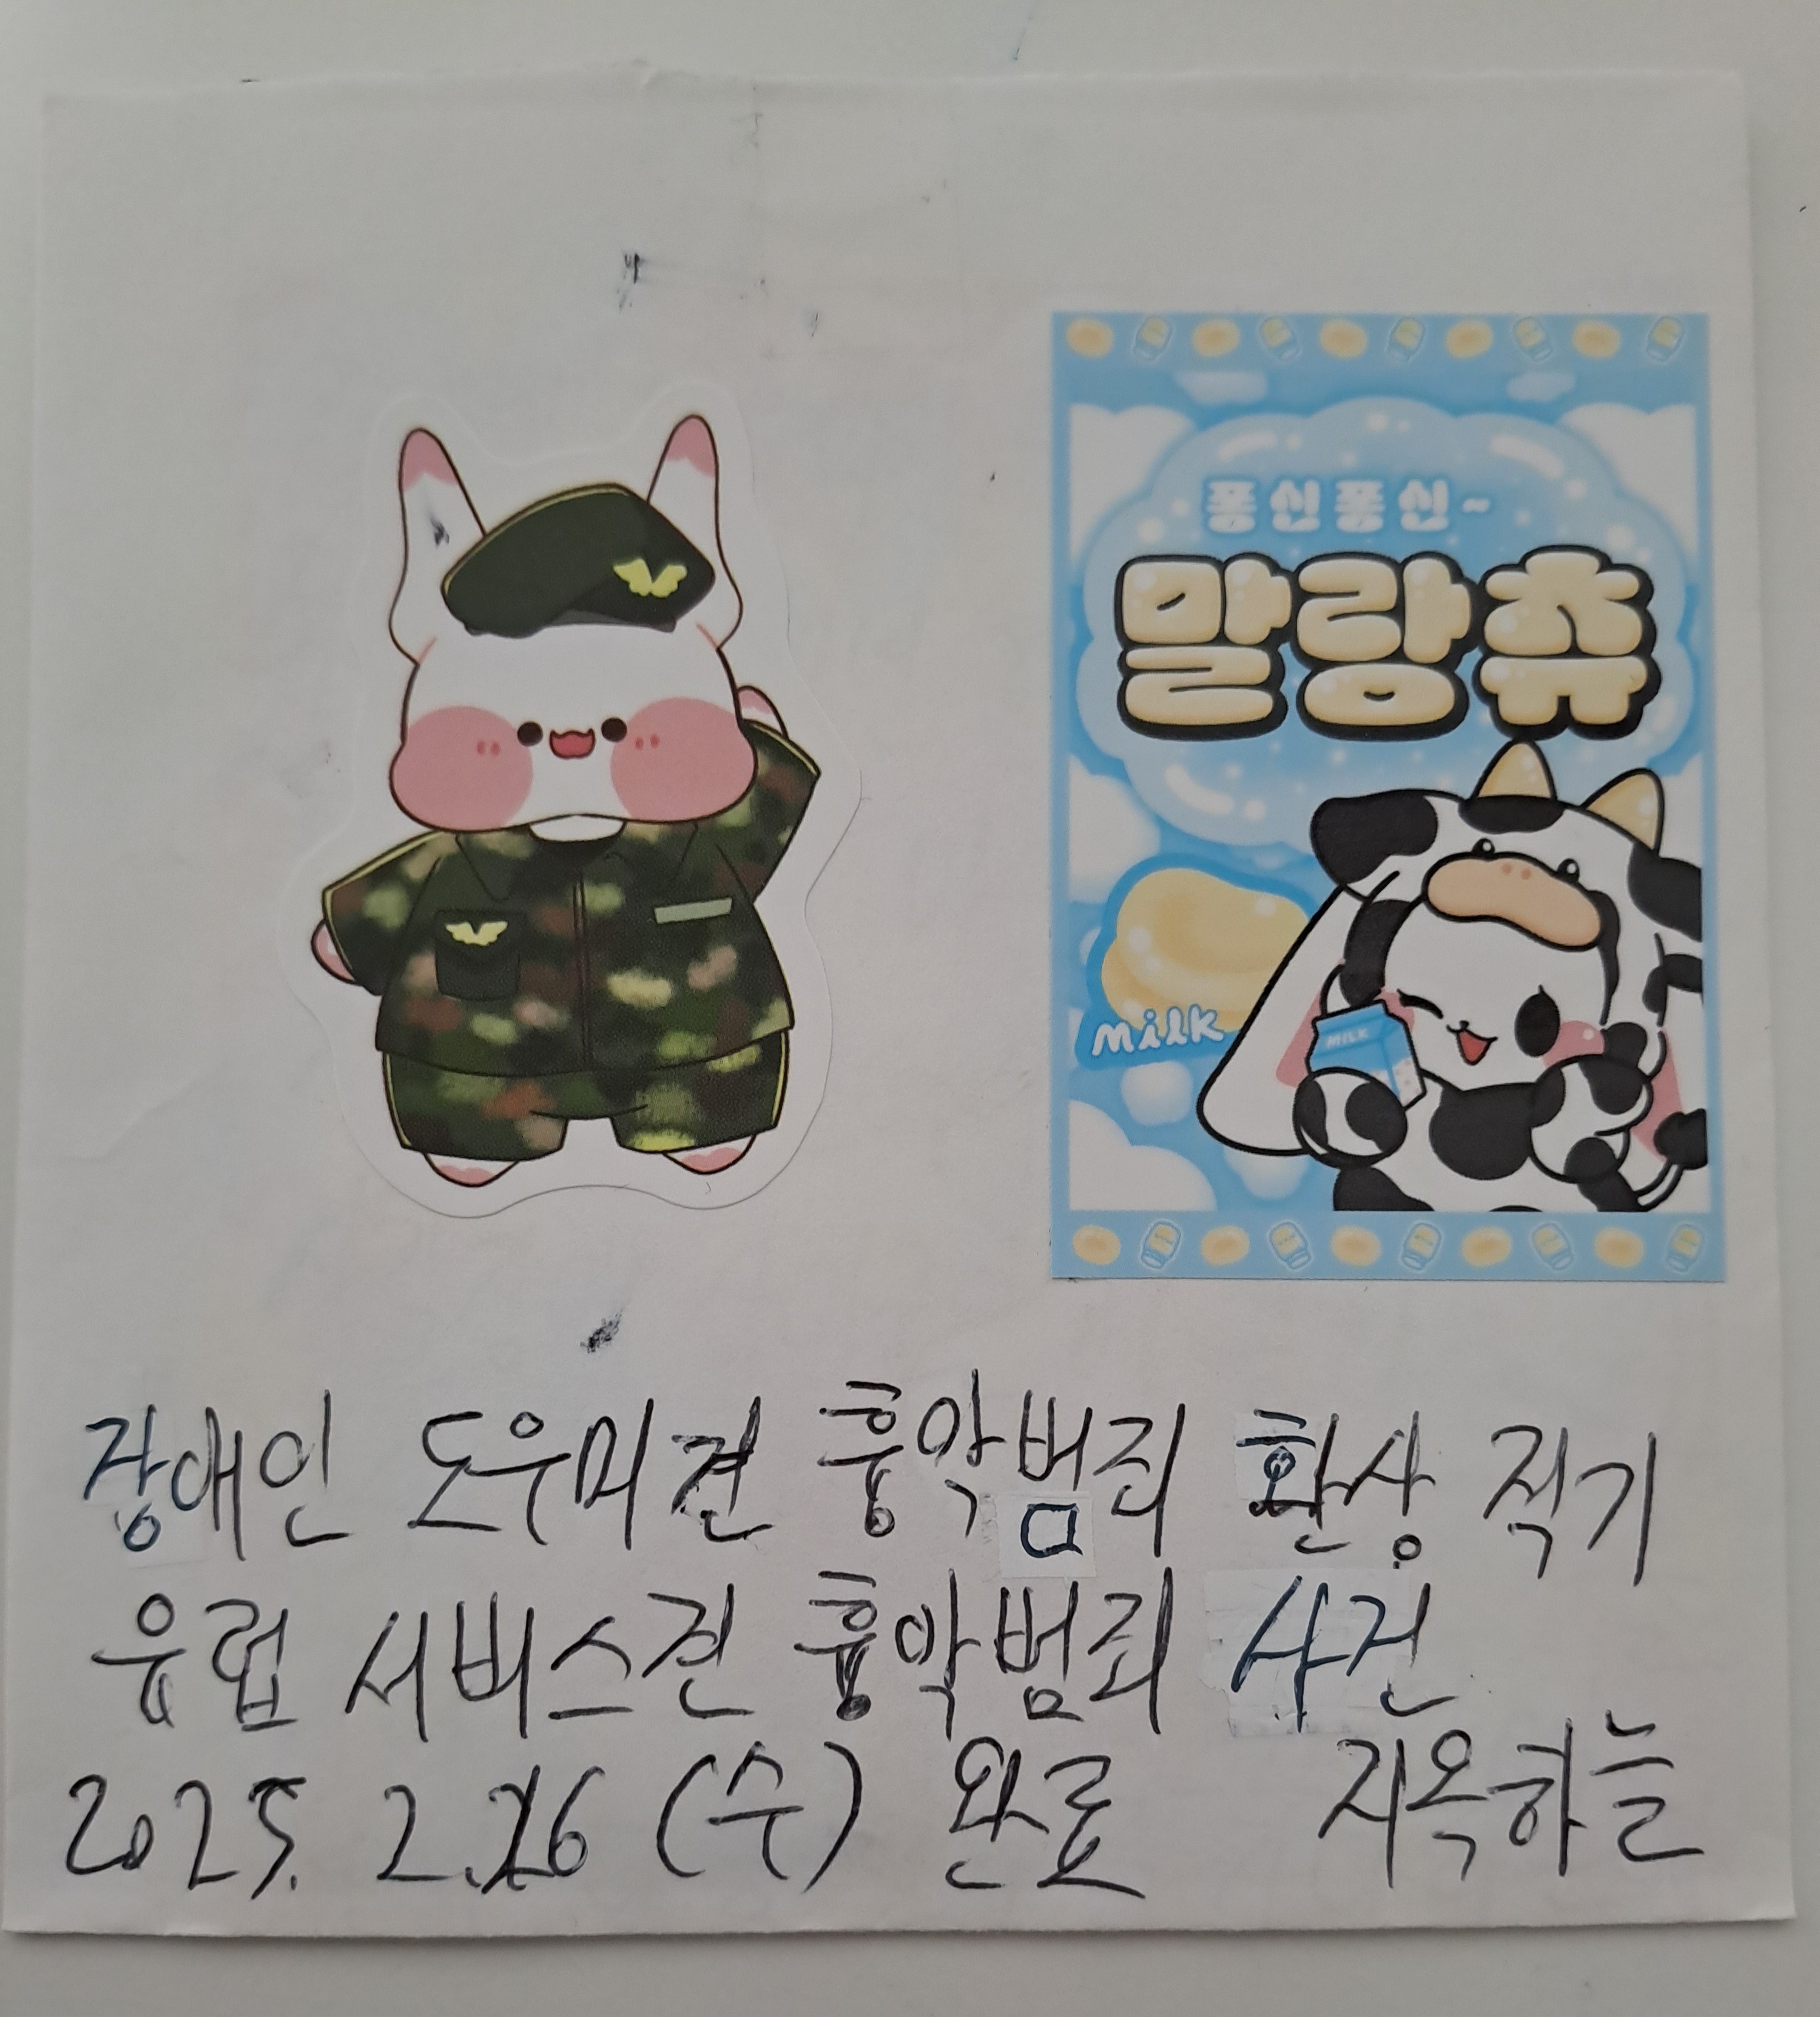 퐁신퐁신~
말랑츄
milk
MILK
장애인 도우미견 흉악범죄 환상 적기
유럽 서비스견 흉악범죄 사건
2025. 2.26 (수) 완료 지옥하늘